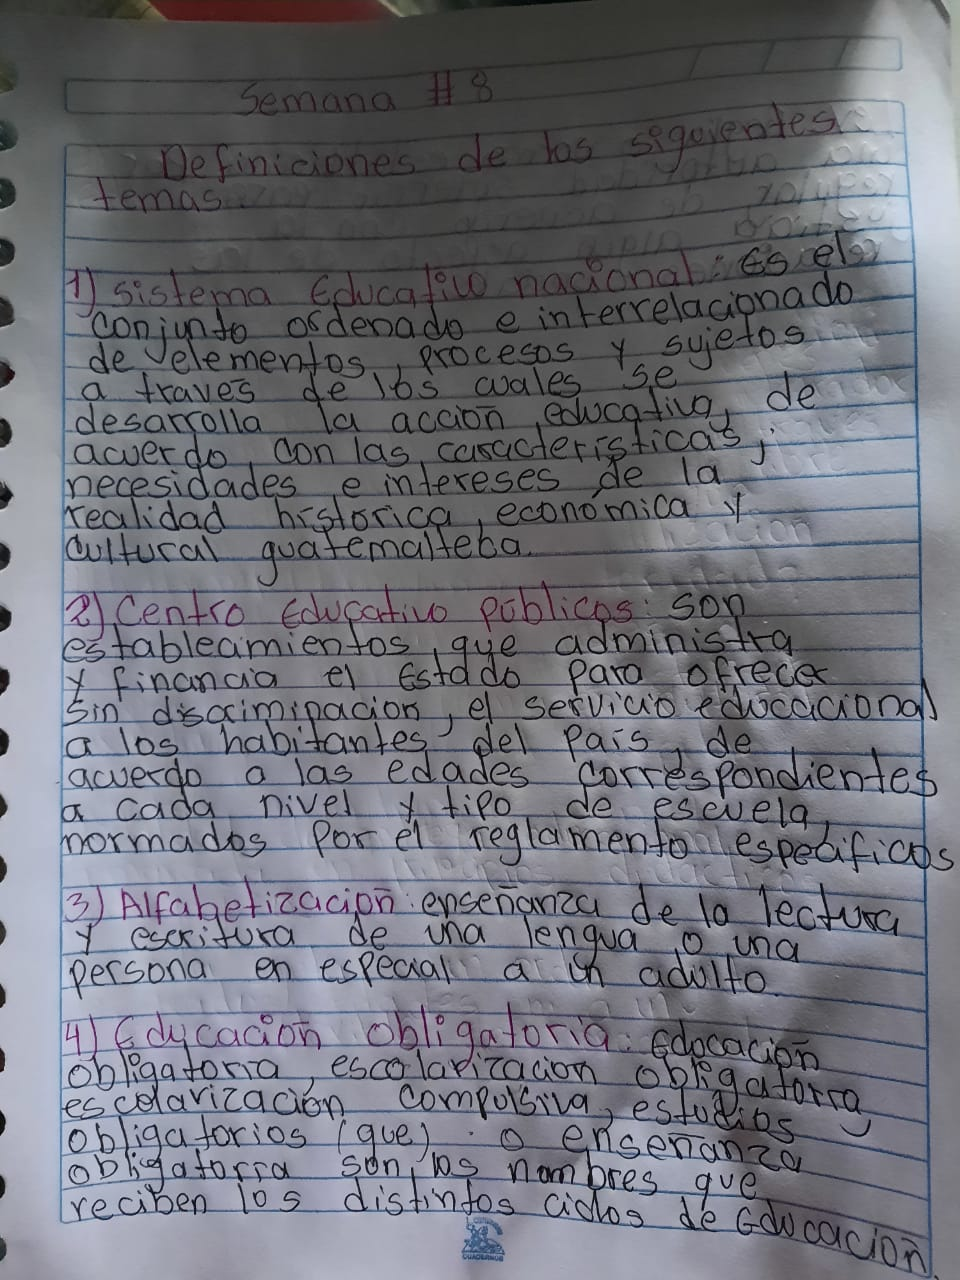 Semana #8
Definiciones de los siguientes
temas
1) Sistema Educativo nacional: Es el
conjunto ordenado e interrelacionado
de elementos, procesos y sujetos
a traves de los cuales se
desarrolla la acción educativa, de
acuerdo con las características,
necesidades e intereses de la
realidad histórica, económica y
cultural guatemalteba.
2) Centro Educativo públicos: son
estableamientos que administra
y financia el Estado para ofrecer
sin discriminacion, el servicio educacional
a los habitantes del país, de
acuerdo a las edades correspondientes
a cada nivel y tipo de escuela,
normados por el reglamento especificos
3) Alfabetización: enseñanza de la lectura
y escritura de una lengua o una
persona en especial a un adulto.
4) Educación obligatoria: Educación
obligatoria, escolarización obligatoria
escolarización compulsiva, estudios
obligatorios (que) o enseñanza
obligatoria son los nombres que
reciben los distintos ciclos de Educación.
CUADERNOS